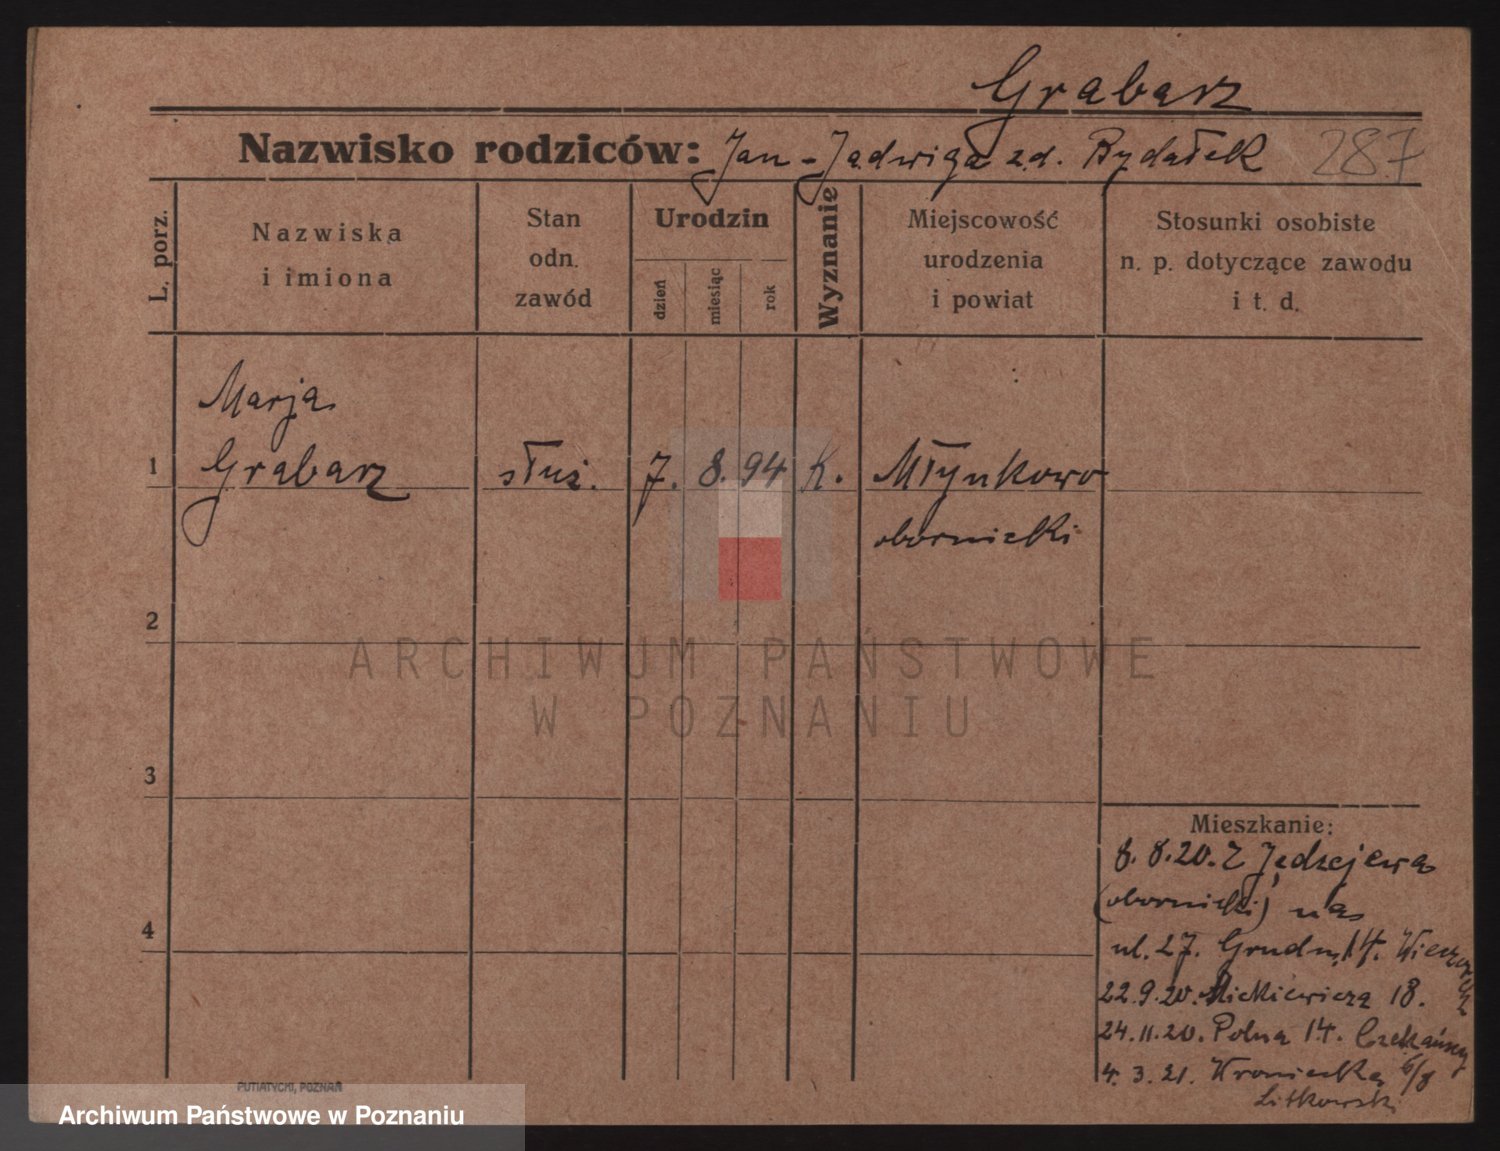 Grabarz
Nazwisko rodziców: Jan - Jadwiga zd. Rydałek 287
L. porz.
Nazwiska
i imiona
Stan
odn.
zawód
Urodzin
dzień
miesiąc
rok
Wyznanie
Miejscowość
urodzenia
i powiat
Stosunki osobiste
n. p. dotyczące zawodu
i t. d.
Marja
1 Grabarz służ. 7. 8. 94 k. Młynkowo
obornicki
2
3
4
Mieszkanie:
8. 8. 20. Z Jędrzejewa
(obornicki) na
ul. 27. Grudn. 14. Wieczorek
22. 9. 20. Mickiewicza 18.
24. 11. 20. Polna 14. Czekański
4. 3. 21. Wroniecka 6/8
Litkowski
PUTIATYCKI, POZNAŃ
ARCHIWUM PAŃSTWOWE
W POZNANIU
Archiwum Państwowe w Poznaniu